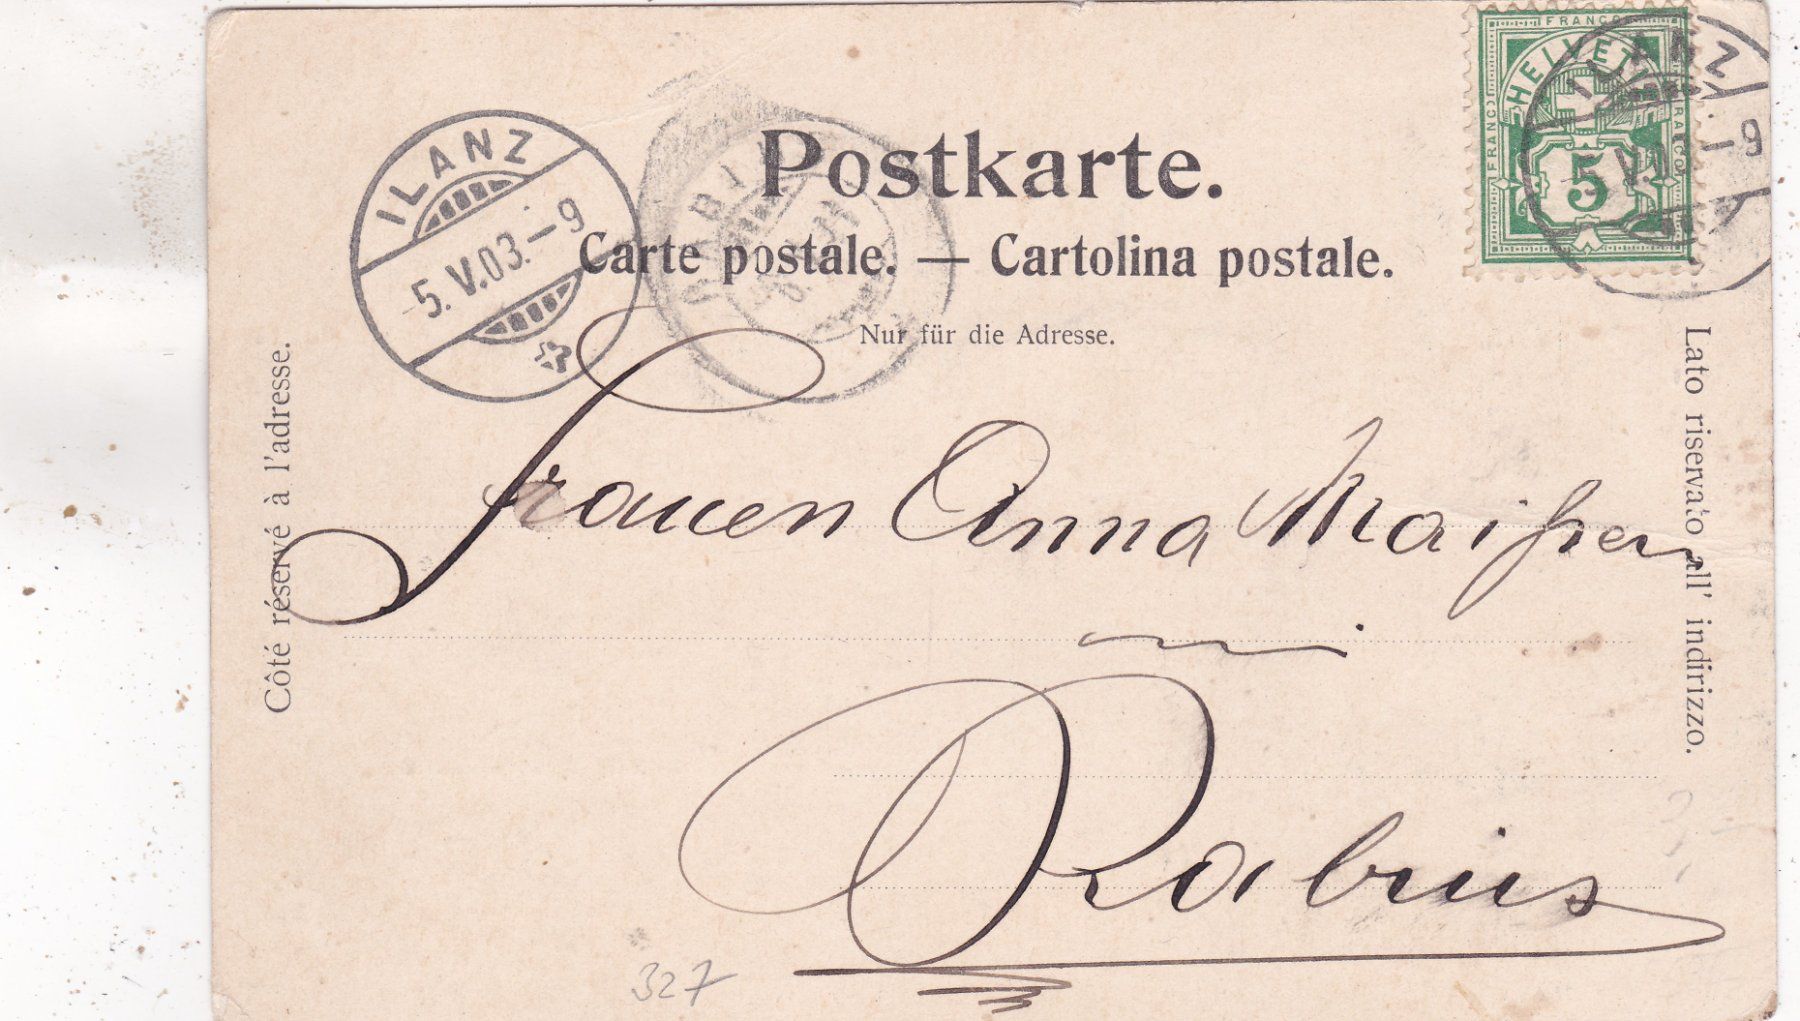 Postkarte.
Carte postale. — Cartolina postale.
Nur für die Adresse.
Côté réservé à l'adresse.
Lato riservato all' indirizzo.
ILANZ
5.V.03.-9
FRANCO
HELVETIA
FRANCO
FRANCO
5
ILANZ
Anna
in
Rabius
327